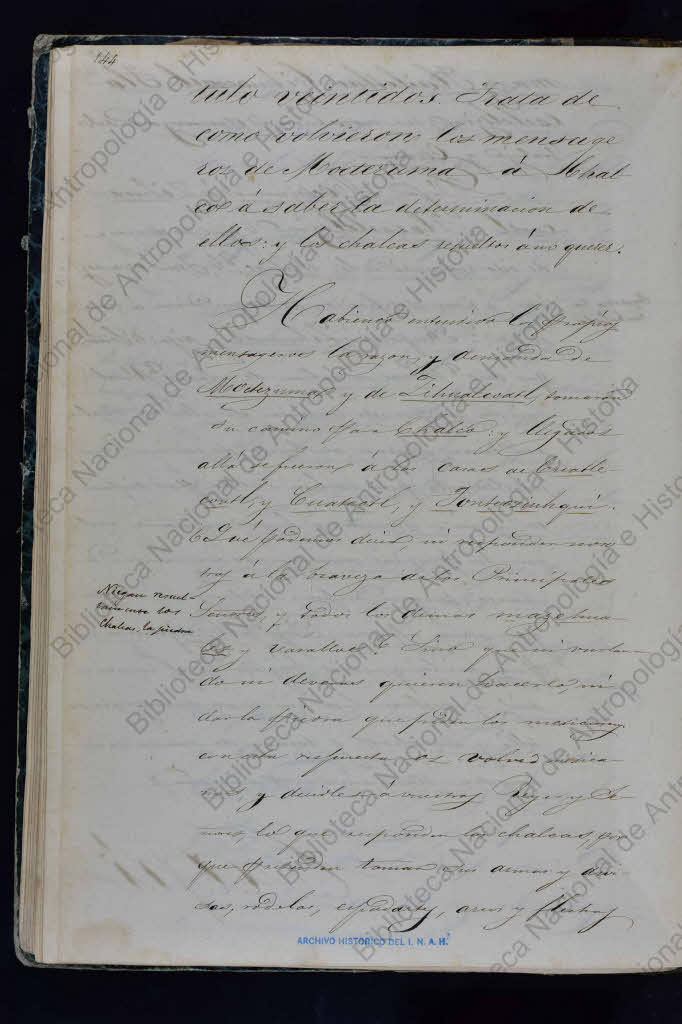 144
tulo veintidos. Trata de
como volvieron los mensage
ros de Moctezuma á Chal
co á saber la determinacion de
ellos: y los chalcas resueltos á no querer.
Habiendo entendido los propios
mensageros la razon, y demanda de
Moctezuma y de Zihualcoatl, tomaron
su camino para Chalco: y llegados
allá se fueron á las casas de
coatl, y Cuateotl, y
Qué podemos decir, ni responder noso
tros á la braveza de los Principales
Señores, y todos los demas mazehua
les y vasallos? Sino que ni
do ni de veras quieren hacerlo, ni
dar la piedra que piden los mexicanos
con esta respuesta os volved mexica
nos, y decidles á vuestros Reyes y Se
ñores, lo que responden los chalcas, por
que pretenden tomar sus armas y divi
sas, rodelas, espadartes, arcos y flechas
Niegan resuel
tamente los
Chalcas, la piedra
ARCHIVO HISTORICO DEL I. N. A. H.
Biblioteca Nacional de Antropología e Historia